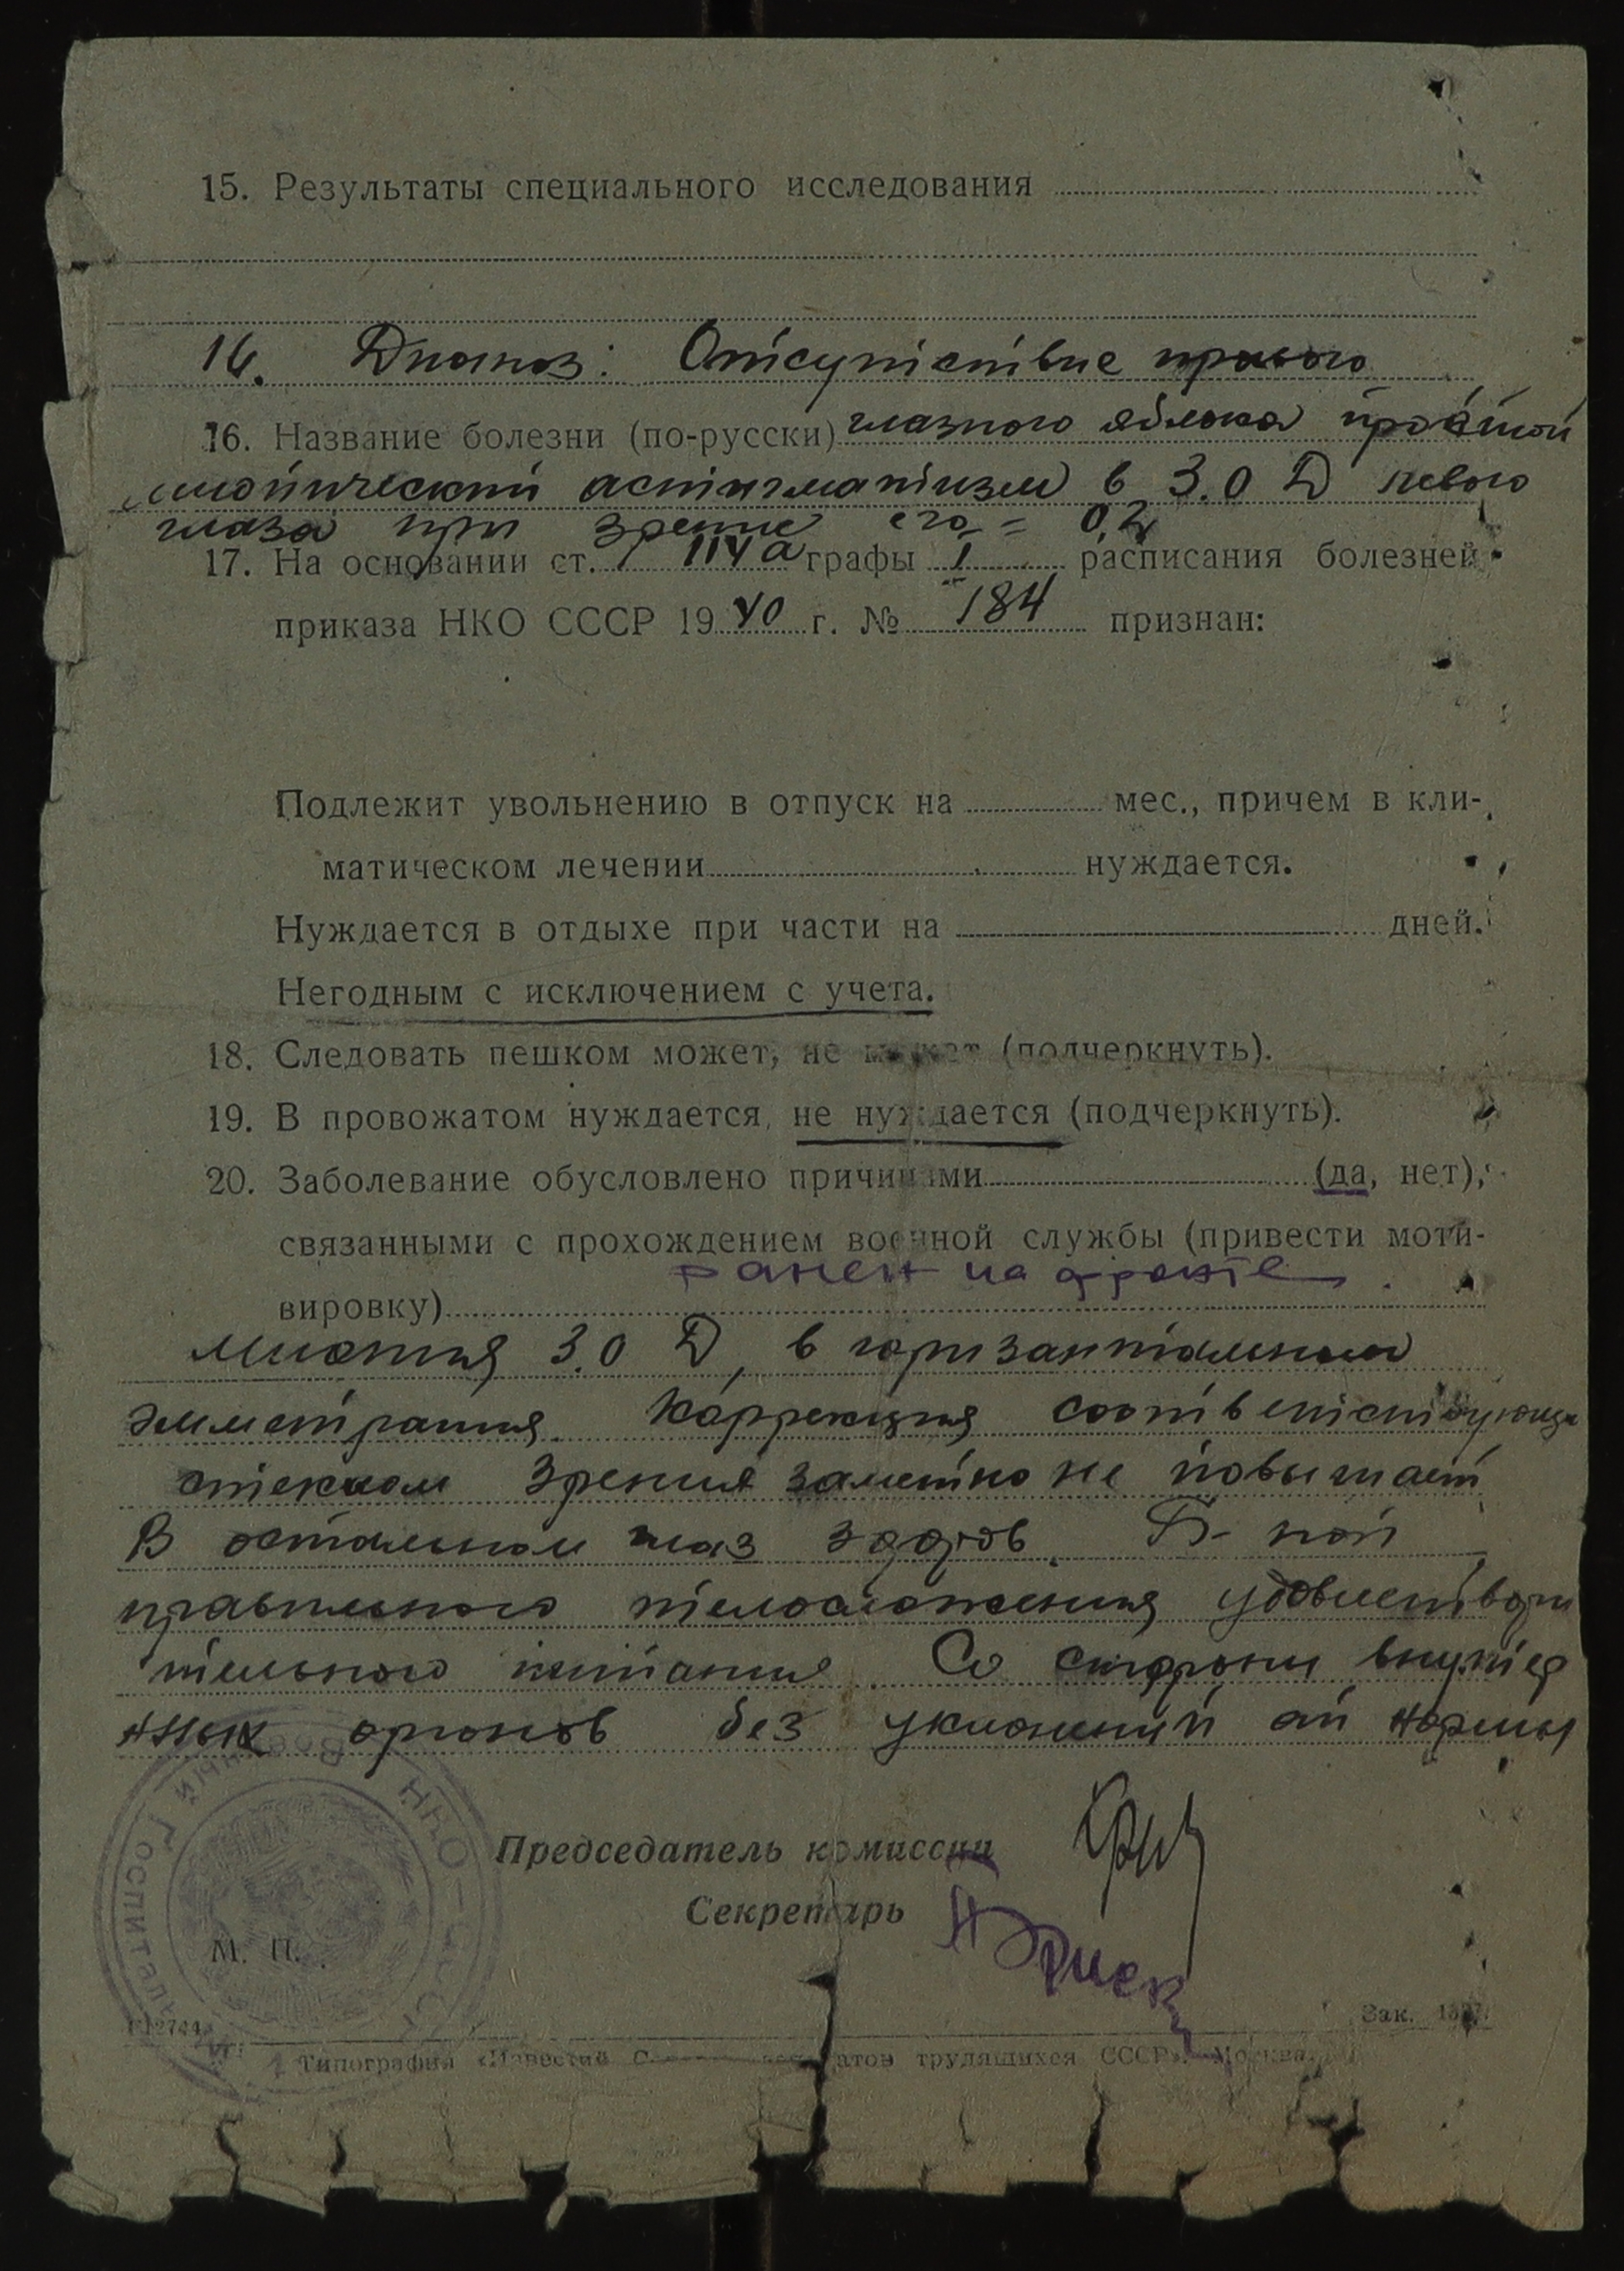 15. Результаты специального исследования
16. Диагноз: Отсутствие правого
16. Название болезни (по-русски) глазного яблока простой
миопический астигматизм в 3.0 D левого
глаза при зрение его = 0,2
17. На основании ст. 114а графы I расписания болезней
приказа НКО СССР 1940 г. № 184 признан:
Подлежит увольнению в отпуск на мес., причем в кли-
матическом лечении нуждается.
Нуждается в отдыхе при части на дней.
Негодным с исключением с учета.
18. Следовать пешком может, не может (подчеркнуть).
19. В провожатом нуждается, не нуждается (подчеркнуть).
20. Заболевание обусловлено причинами (да, нет),
связанными с прохождением военной службы (привести моти-
ранен на фронте.
вировку)
Миопия 3.0 D, в горизантальном
Коррекция соответствующи
стеклом зрения заметно не повышает
В остальном глаз здоров. Б-ной
правильного телосложения удовлетвори
тельного питания. Со стороны внутер
нных органов без уклонений от нормы
НКО-СССР Военный Госпиталь
Председатель комиссии
Секретарь
М. П.
Г12744
Зак.
Типография «Известий трудящихся СССР». Москва.